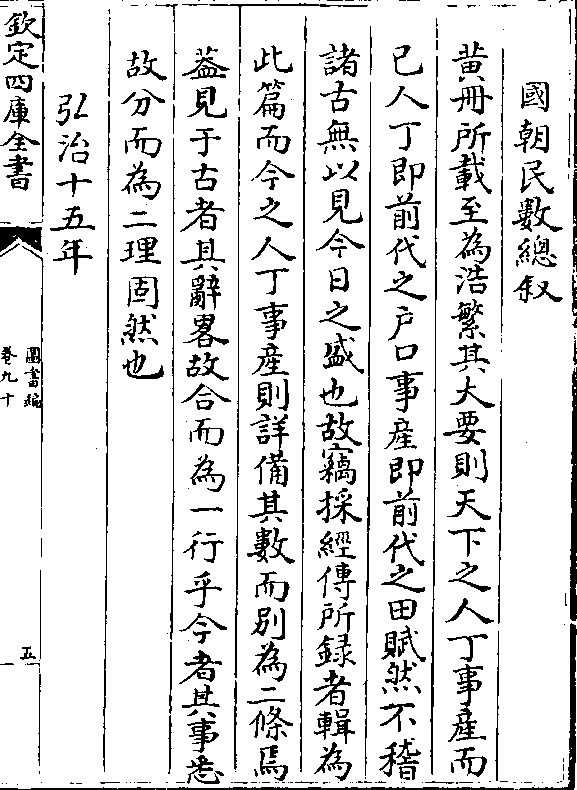 國朝民數總叙
黄冊所載至為浩繁其大要則天下之人丁事產而
已人丁即前代之戶口事產即前代之田賦然不稽
諸古無以見今日之盛也故竊採經傳所録者輯為
此篇而今之人丁事產則詳備其數而别為二條焉
葢見于古者其辭畧故合而為一行乎今者其事悉
故分而為二理固然也
弘治十五年
欽定四庫全書
圖書編
卷九十
五